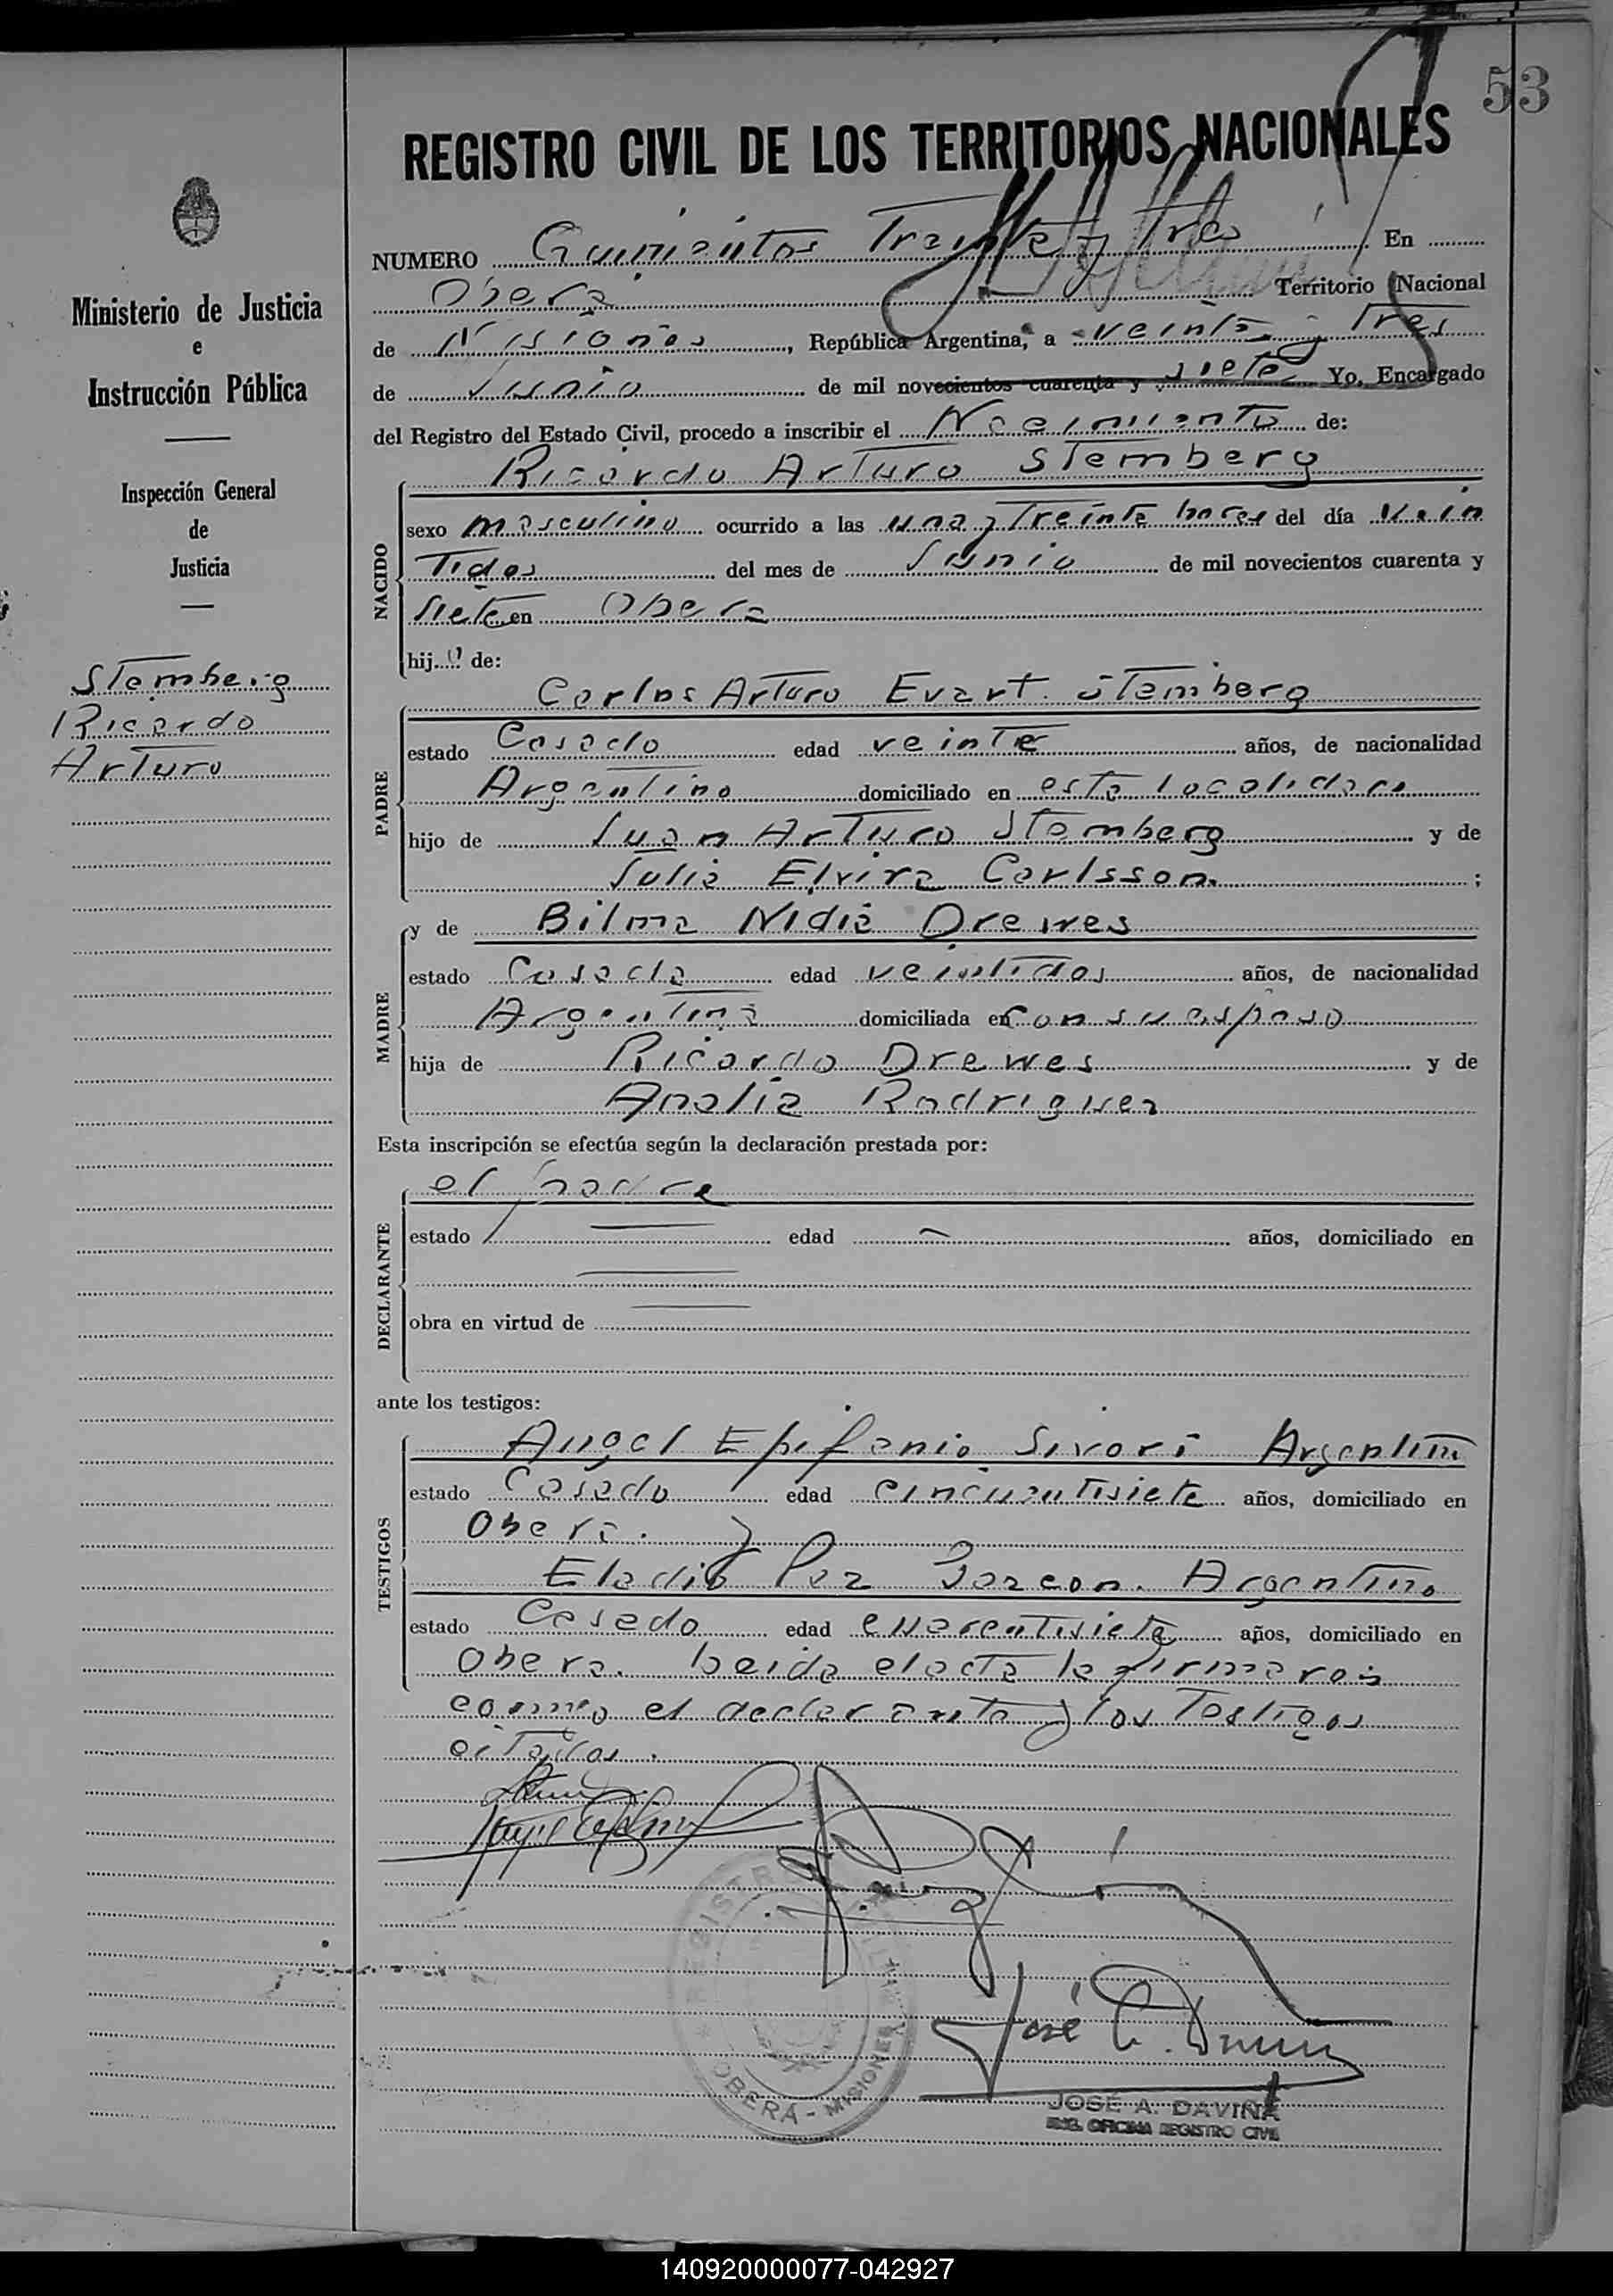 53
REGISTRO CIVIL DE LOS TERRITORIOS NACIONALES
NUMERO Quinientos Treinta y Tres En
Oberá Territorio Nacional
de Misiones, República Argentina, a veinte y Tres
de Junio de mil novecientos cuarenta y siete Yo, Encargado
del Registro del Estado Civil, procedo a inscribir el Nacimiento de:
Ricardo Arturo Stemberg
NACIDO
sexo masculino ocurrido a las una y Treinta horas del día Vein
Tidos del mes de Junio de mil novecientos cuarenta y
siete en Obera
hijo de:
PADRE
Carlos Arturo Evart Stemberg
estado Casado edad veinte años, de nacionalidad
Argentino domiciliado en esta localidad
hijo de Juan Arturo Stemberg y de
Julia Elvira Carlsson. ;
MADRE
y de Bilma Nidia Drewes
estado Casada edad veintidos años, de nacionalidad
Argentina domiciliada en con su esposo
hija de Ricardo Drewes y de
Analia Rodriguez
Esta inscripción se efectúa según la declaración prestada por:
DECLARANTE
el padre
estado edad años, domiciliado en
obra en virtud de
ante los testigos:
TESTIGOS
Angel Epifanio Sivori Argentino
estado Casado edad cincuentisiete años, domiciliado en
Obera. y
Eladio Paz Garzon. Argentino
estado Casado edad cuarentisiete años, domiciliado en
Obera. Leida el acta la firmaron
como el declarante y los Testigos
citados.
Ministerio de Justicia
e
Instrucción Pública
Inspección General
de
Justicia
Stemberg
Ricardo
Arturo
REGISTRO CIVIL
OBERA - MISIONES
JOSÉ A. DAVIÑA
ENC. OFICINA REGISTRO CIVIL
140920000077-042927